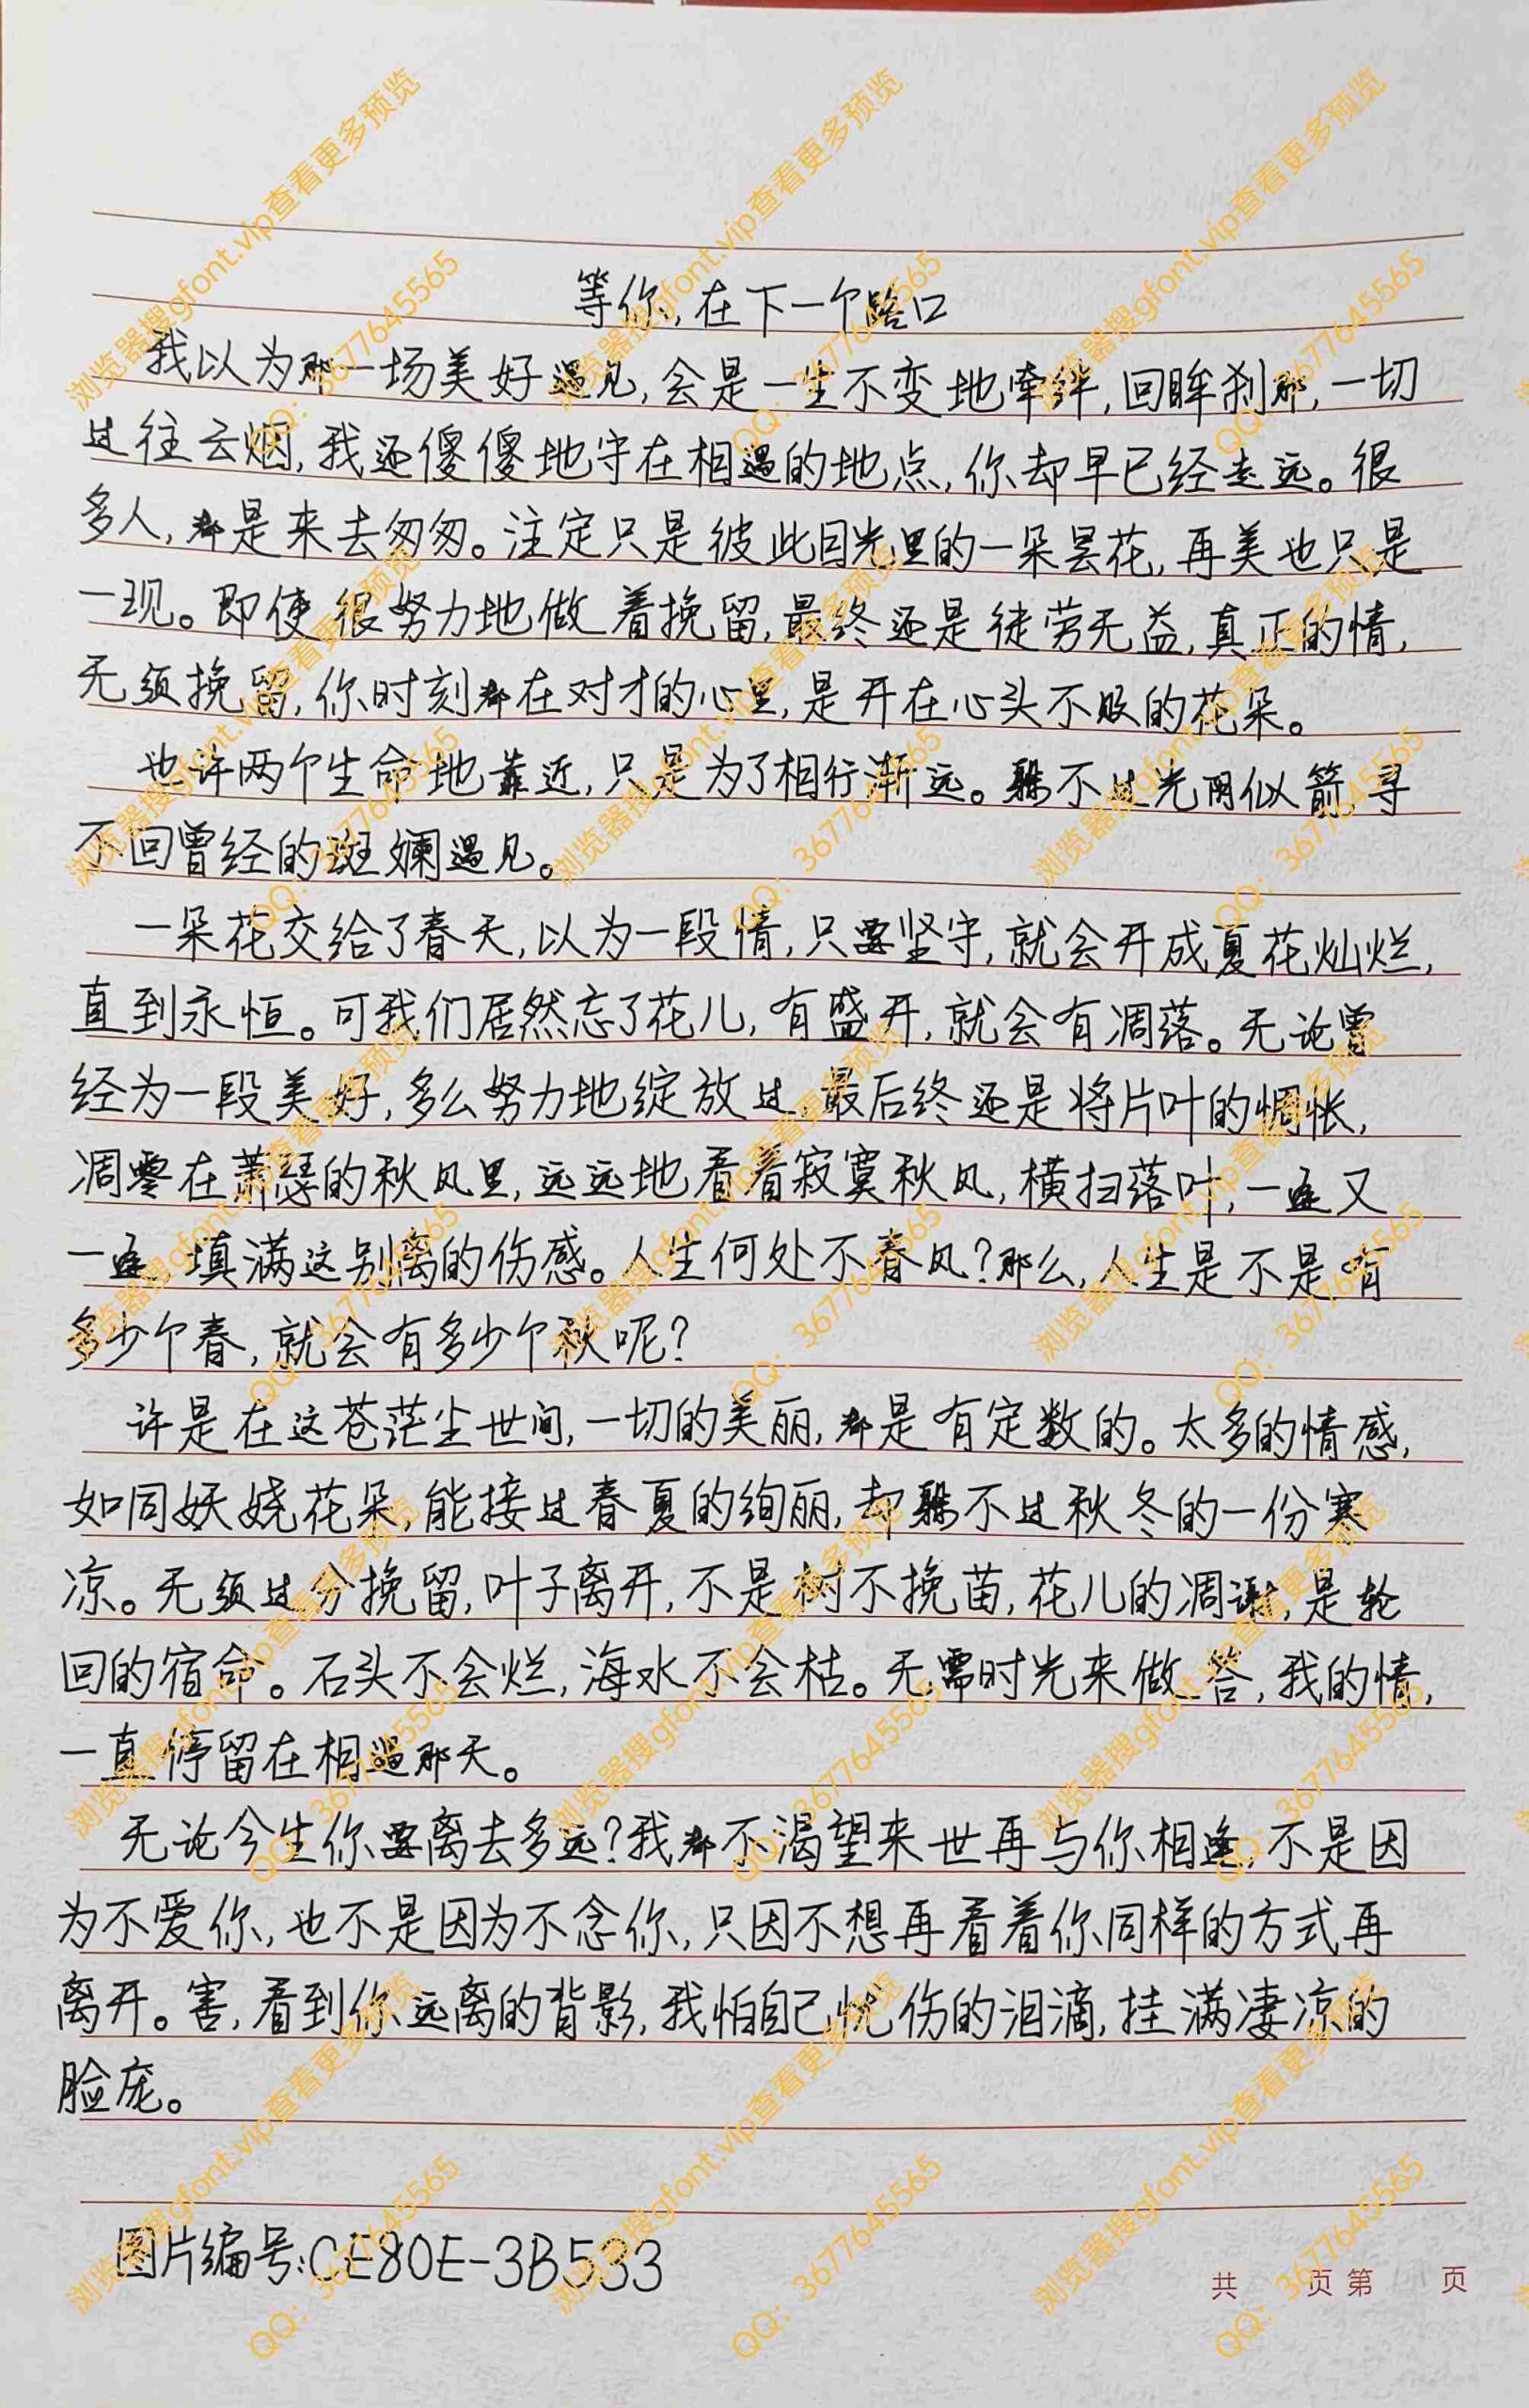 等你,在下一个路口
我以为那一场美好遇见,会是一生不变地牵绊,回眸刹那,一切
过往云烟,我还傻傻地守在相遇的地点,你却早已经走远。很
多人,都是来去匆匆。注定只是彼此目光里的一朵昙花,再美也只是
一现。即使很努力地做着挽留,最终还是徒劳无益,真正的情,
无须挽留,你时刻都在对才的心里,是开在心头不败的花朵。
也许两个生命地靠近,只是为了相行渐远。躲不过光阴似箭,寻
不回曾经的斑斓遇见。
一朵花交给了春天,以为一段情,只要坚守,就会开成夏花灿烂,
直到永恒。可我们居然忘了花儿,有盛开,就会有凋落。无论曾
经为一段美好,多么努力地绽放过,最后终还是将片叶的惆怅,
凋零在萧瑟的秋风里,远远地看着寂寞秋风,横扫落叶,一遍又
一遍,填满这别离的伤感。人生何处不春风?那么,人生是不是有
多少个春,就会有多少个秋呢?
许是在这苍茫尘世间,一切的美丽,都是有定数的。太多的情感,
如同妖娆花朵,能接过春夏的绚丽,却躲不过秋冬的一份寒
凉。无须过分挽留,叶子离开,不是树不挽苗,花儿的凋谢,是轮
回的宿命。石头不会烂,海水不会枯。无需时光来做答,我的情,
一直停留在相遇那天。
无论今生你要离去多远?我都不渴望来世再与你相逢,不是因
为不爱你,也不是因为不念你,只因不想再看着你同样的方式再
离开。害,看到你远离的背影,我怕自己忧伤的泪滴,挂满凄凉的
脸庞。
图片编号:CE80E-3B533
共 页 第 页
浏览器搜gfont.vip查看更多预览
QQ: 3677645565